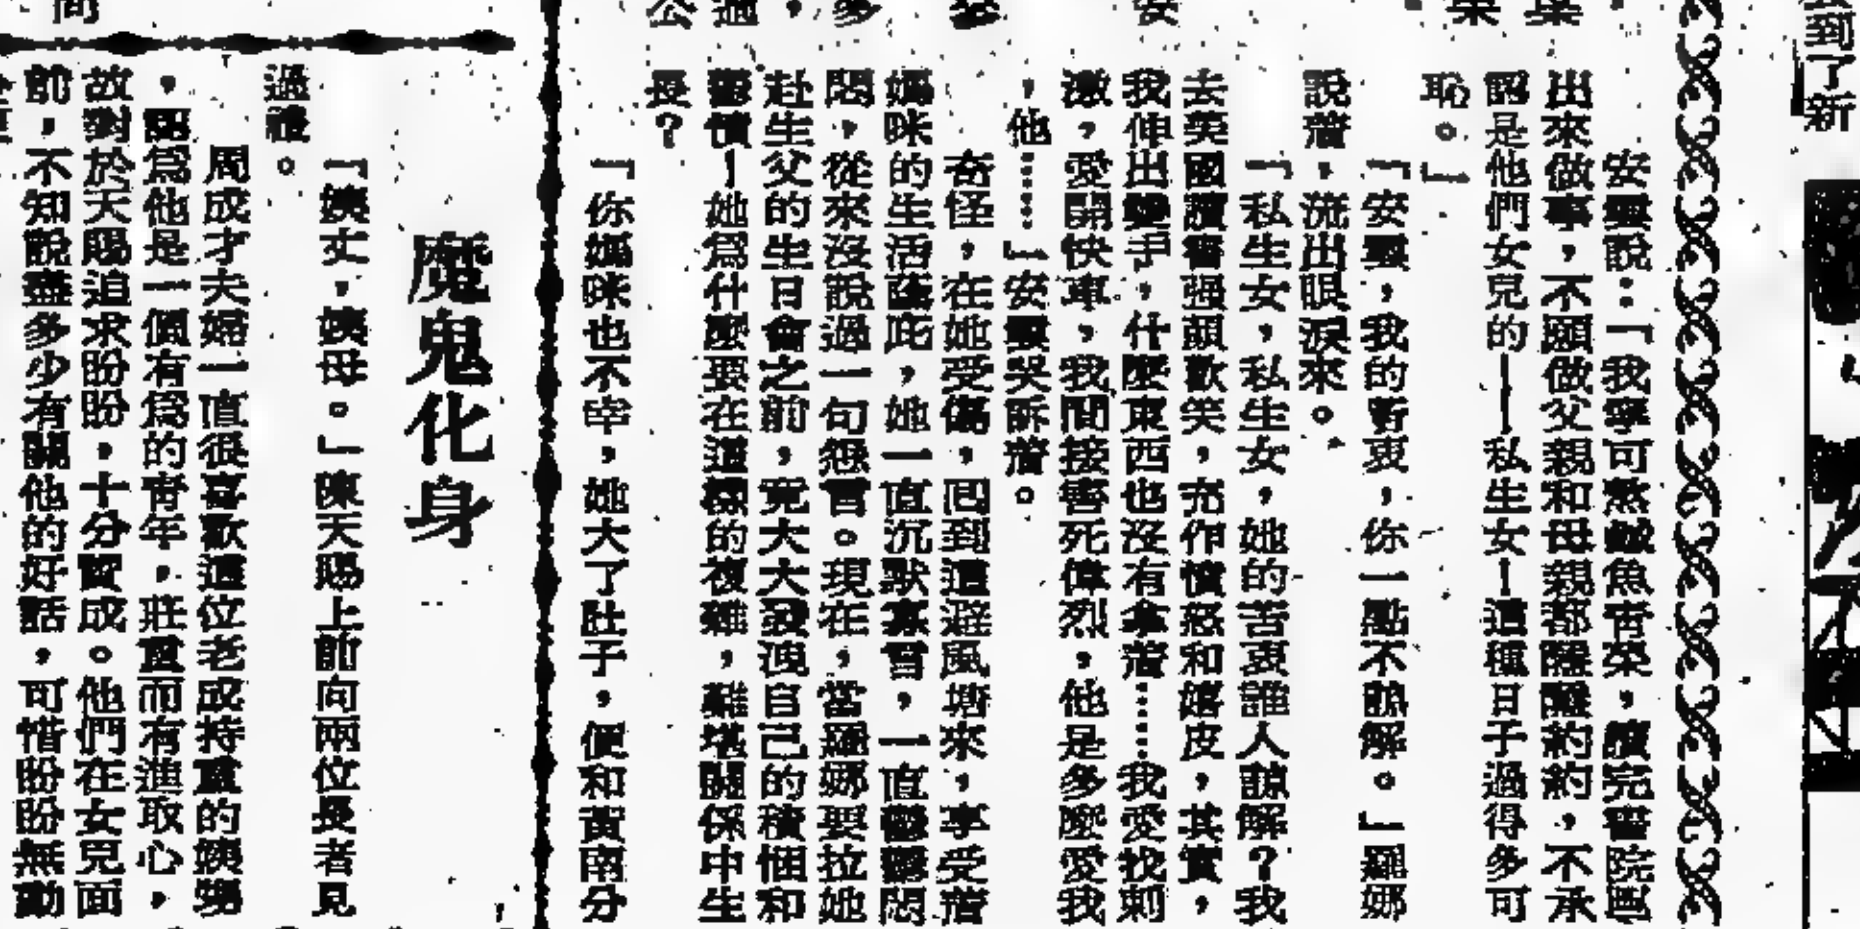 到了新
安靈說：「我寧可熬鹹魚靑菜，讀完書院
出來做事，不願做父親和母親都隱隱約約，不承
認是他們女兒的——私生女！這種日子過得多可
恥。」
「安靈，我的
衷，你一點不諒解。」羅娜
說着，流出眼淚來。
「私生女，私生女，她的苦衷誰人諒解？我
去英國讀書强顏歡笑，充作憤怒和嬉皮，其實，
我伸出雙手，什麼東西也沒有拿着……我愛找刺
激，愛開快車，我間接害死偉烈，他是多麼愛我
，他……」安靈哭訴着。
奇怪，在她受傷，回到這避風塘來，享受着
媽咪的生活蔭庇，她一直沉默寡言，一直鬱鬱悶
悶，從來沒說過一句怨言。現在，當羅娜要拉她
赴生父的生日會之前，竟大大發洩自己的積悃和
鬱憤！她爲什麼要在這樣的複雜，難堪關係中生
長？
「你媽咪也不幸，她大了肚子，便和黃南分
魔鬼化身
「姨丈，姨母。」陳天賜上前向兩位長者見
過禮。
周成才夫婦一直很喜歡這位老成持重的姨甥
，認爲他是一個有爲的靑年，莊重而有進取心，
故對於天賜追求盼盼，十分贊成。他們在女兒面
前，不知說盡多少有關他的好話，可惜盼盼無動